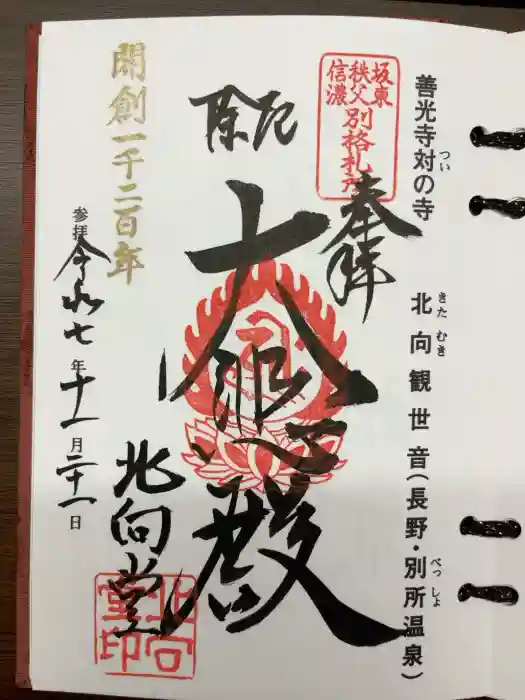 善光寺対の寺
つい
北向観世音(長野・別所温泉)
きた むき
べっ しょ
坂東
秩父
信濃
別格札所
奉拝
厄除
大悲殿
北向堂
北向
堂印
開創一千二百年
参拝 令和七年十一月二十一日